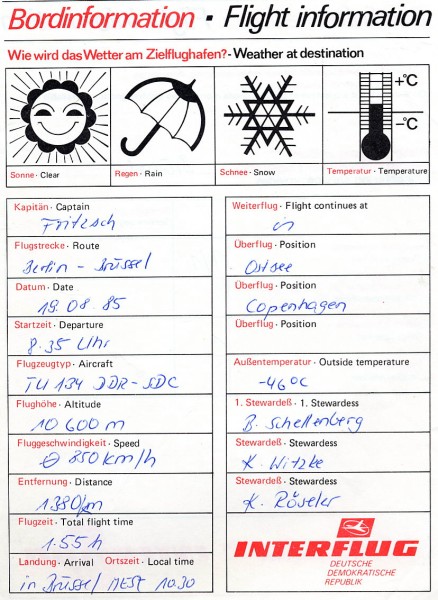 Bordinformation · Flight information
Wie wird das Wetter am Zielflughafen? - Weather at destination
+°C
-°C
Sonne · Clear
Regen · Rain
Schnee · Snow
Temperatur · Temperature
Kapitän · Captain
Fritzsch
Flugstrecke · Route
Berlin - Brüssel
Datum · Date
19.08.85
Startzeit · Departure
8.35 Uhr
Flugzeugtyp · Aircraft
TU 134 DDR-SDC
Flughöhe · Altitude
10 600 m
Fluggeschwindigkeit · Speed
∅ 850 km/h
Entfernung · Distance
1380 km
Flugzeit · Total flight time
1.55 h
Landung · Arrival Ortszeit · Local time
in Brüssel MESZ 10.30
Weiterflug · Flight continues at
in
Überflug · Position
Ostsee
Überflug · Position
Copenhagen
Überflug · Position
Außentemperatur · Outside temperature
-46°C
1. Stewardeß · 1. Stewardess
B. Schellenberg
Stewardeß · Stewardess
K. Witzke
Stewardeß · Stewardess
K. Röseler
INTERFLUG
DEUTSCHE
DEMOKRATISCHE
REPUBLIK